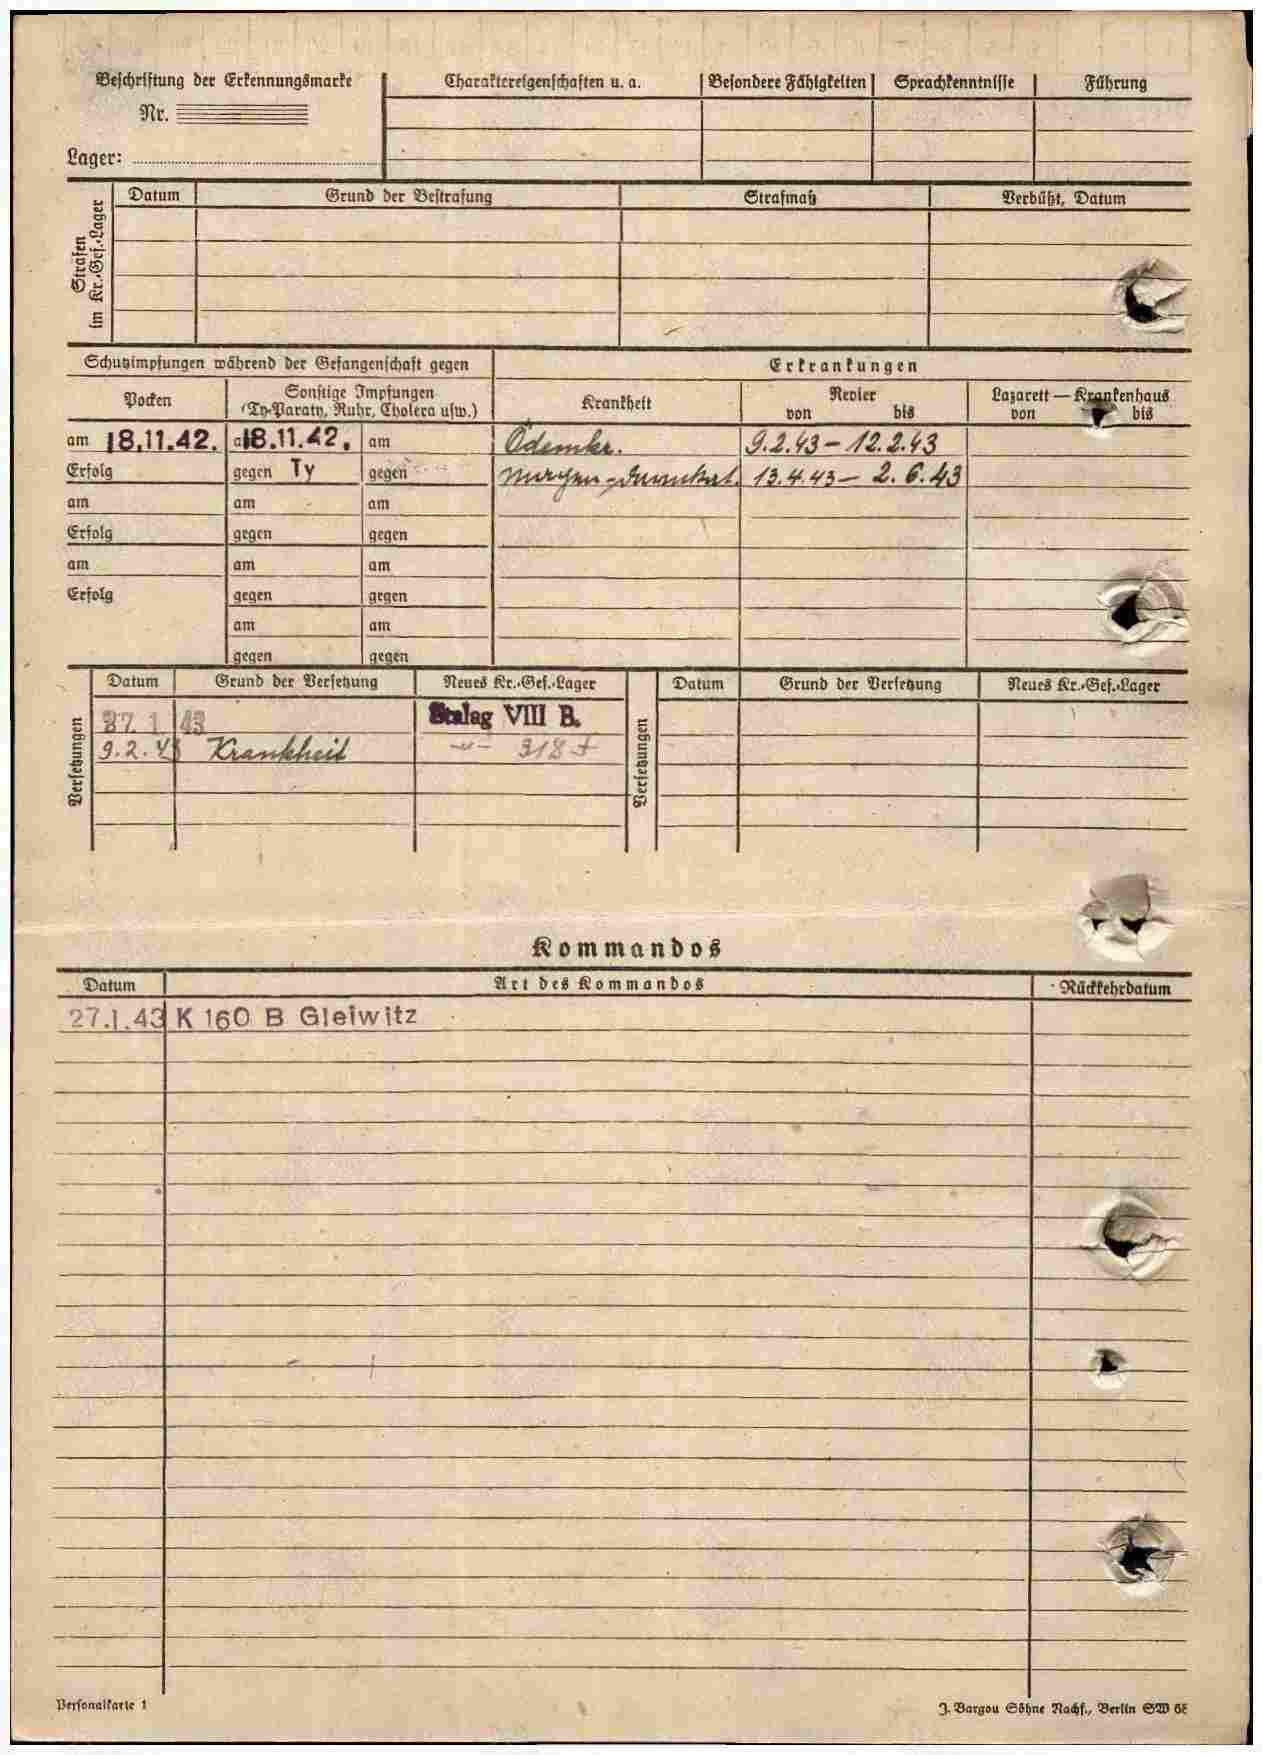 Beschriftung der Erkennungsmarke
Nr.
Lager:
Charaktereigenschaften u. a. Besondere Fähigkeiten Sprachkenntnisse Führung
Strafen im Kr.-Gef.-Lager
Datum Grund der Bestrafung Strafmaß Verbüßt, Datum
Schutzimpfungen während der Gefangenschaft gegen
Erkrankungen
Pocken
Sonstige Impfungen
(Ty-Paraty, Ruhr, Cholera usw.)
Krankheit
Revier
von bis
Lazarett — Krankenhaus
von bis
am 18.11.42. a 18.11.42. am Ödemkr. 9.2.43 – 12.2.43
Erfolg gegen Ty gegen 13.4.43 – 2.6.43
am am am
Erfolg gegen gegen
am am am
Erfolg gegen gegen
am am
gegen gegen
Versetzungen
Datum Grund der Versetzung Neues Kr.-Gef.-Lager
27.1.43 Stalag VIII B.
9.2.43 Krankheit –"– 318 F
Versetzungen
Datum Grund der Versetzung Neues Kr.-Gef.-Lager
Kommandos
Datum Art des Kommandos Rückkehrdatum
27.1.43 K 160 B Gleiwitz
Personalkarte 1
J. Bargou Söhne Nachf., Berlin SW 68